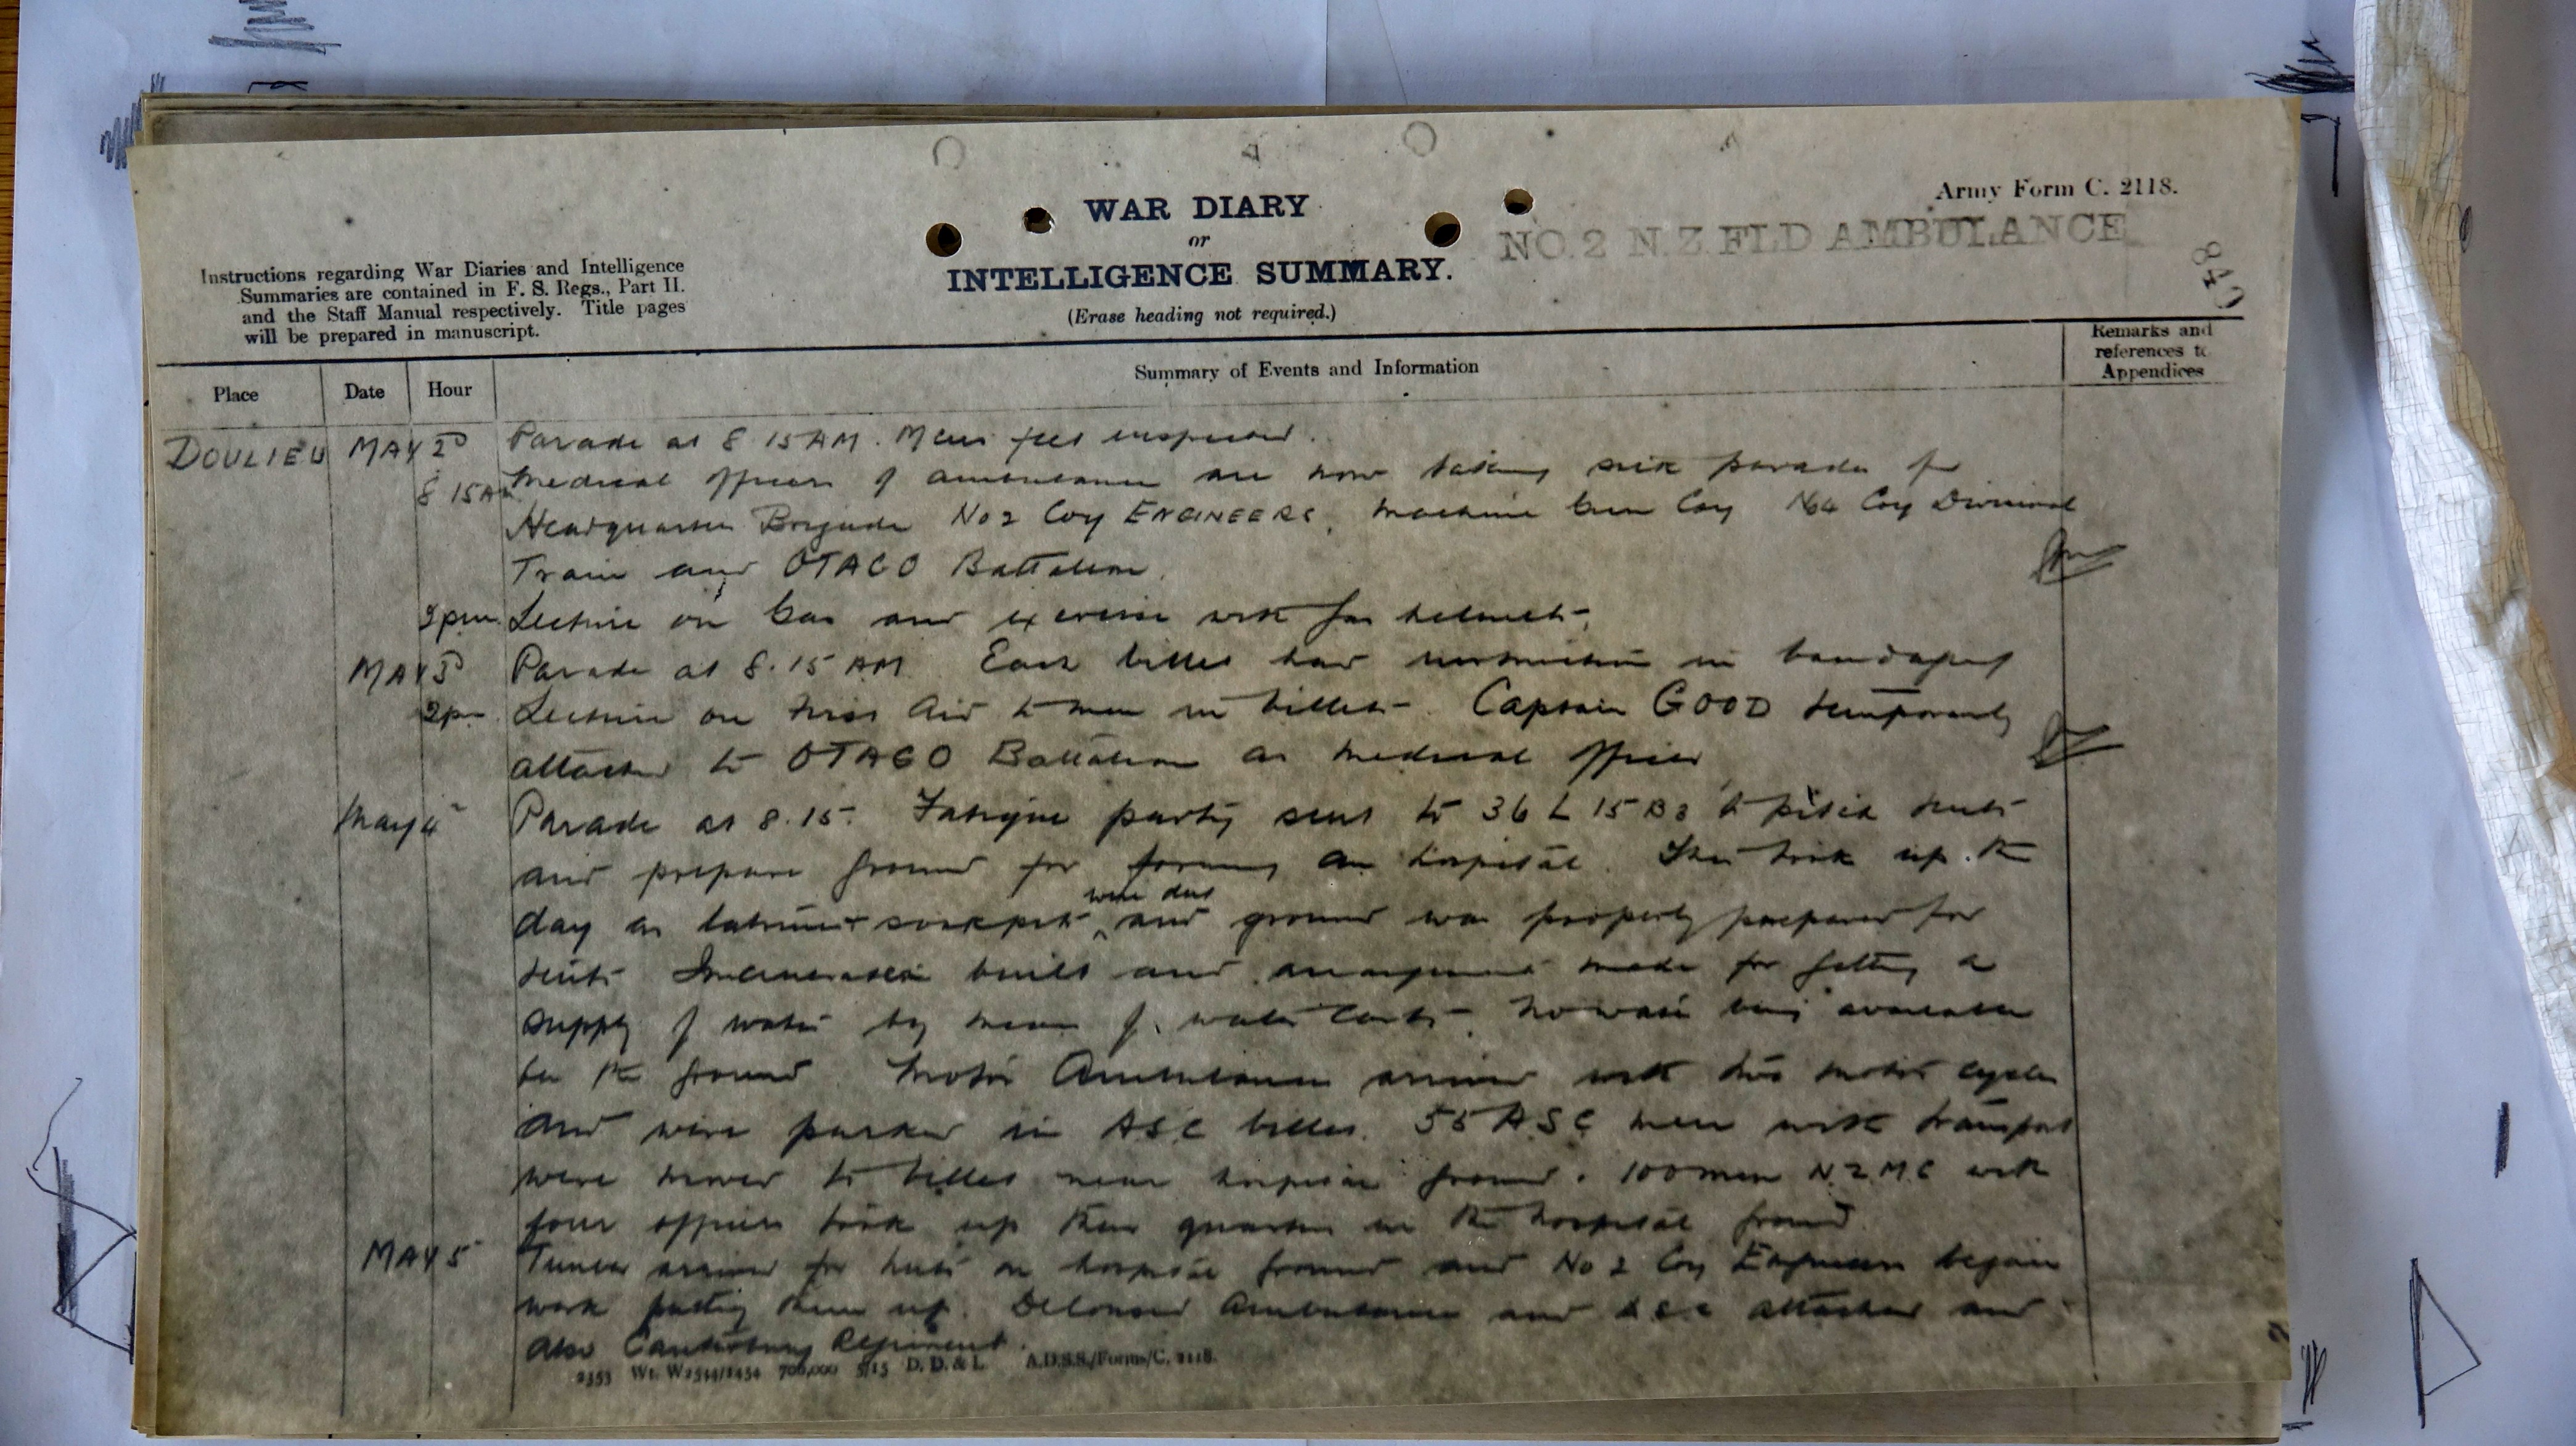 Army Form C. 2118.
WAR DIARY
or
INTELLIGENCE SUMMARY.
(Erase heading not required.)
NO. 2 N.Z. FLD AMBULANCE
Instructions regarding War Diaries and Intelligence
Summaries are contained in F. S. Regs., Part II.
and the Staff Manual respectively. Title pages
will be prepared in manuscript.
Place Date Hour Summary of Events and Information Remarks and references to Appendices
DOULIEU MAY 2D Parade at 8 15 AM. Mens feet inspected.
8 15AM Medical officers of ambulance are now taking sick parades for
Headquarters Brigade No 2 Coy ENGINEERS, Machine Gun Coy No 4 Coy Divisional
Train and OTAGO Battalion.
2pm Lecture on Gas and exercise with gas helmets.
MAY 3D Parade at 8.15 AM Each billet had instruction in bandaging
2pm Lecture on First Aid to men in billets. Captain GOOD temporarily
attached to OTAGO Battalion as medical officer
May 4 Parade at 8.15. Fatigue party sent to 36 L 15 B 3 to pitch tents
and prepare ground for forming an hospital. This took up the
day as latrines soakpits were dug and ground was properly prepared for
tents Incinerator built and arrangements made for getting a
supply of water by means of water carts, no water being available
on the ground. Motor Ambulances arrived with two motor cycles
and were parked in ASC billet. 55 A.S.C men with transport
were moved to billet near hospital ground. 100 men N.Z.M.C with
four officers took up their quarters in the hospital ground.
MAY 5 Timber arrived for huts on hospital ground and No 2 Coy Engineers began
work putting them up. Deloused Ambulance and A.S.C attached and
also Canterbury Regiment.
2353 Wt. W2544/1454 700,000 5/15 D. D. & L. A.D.S.S./Forms/C. 2118.